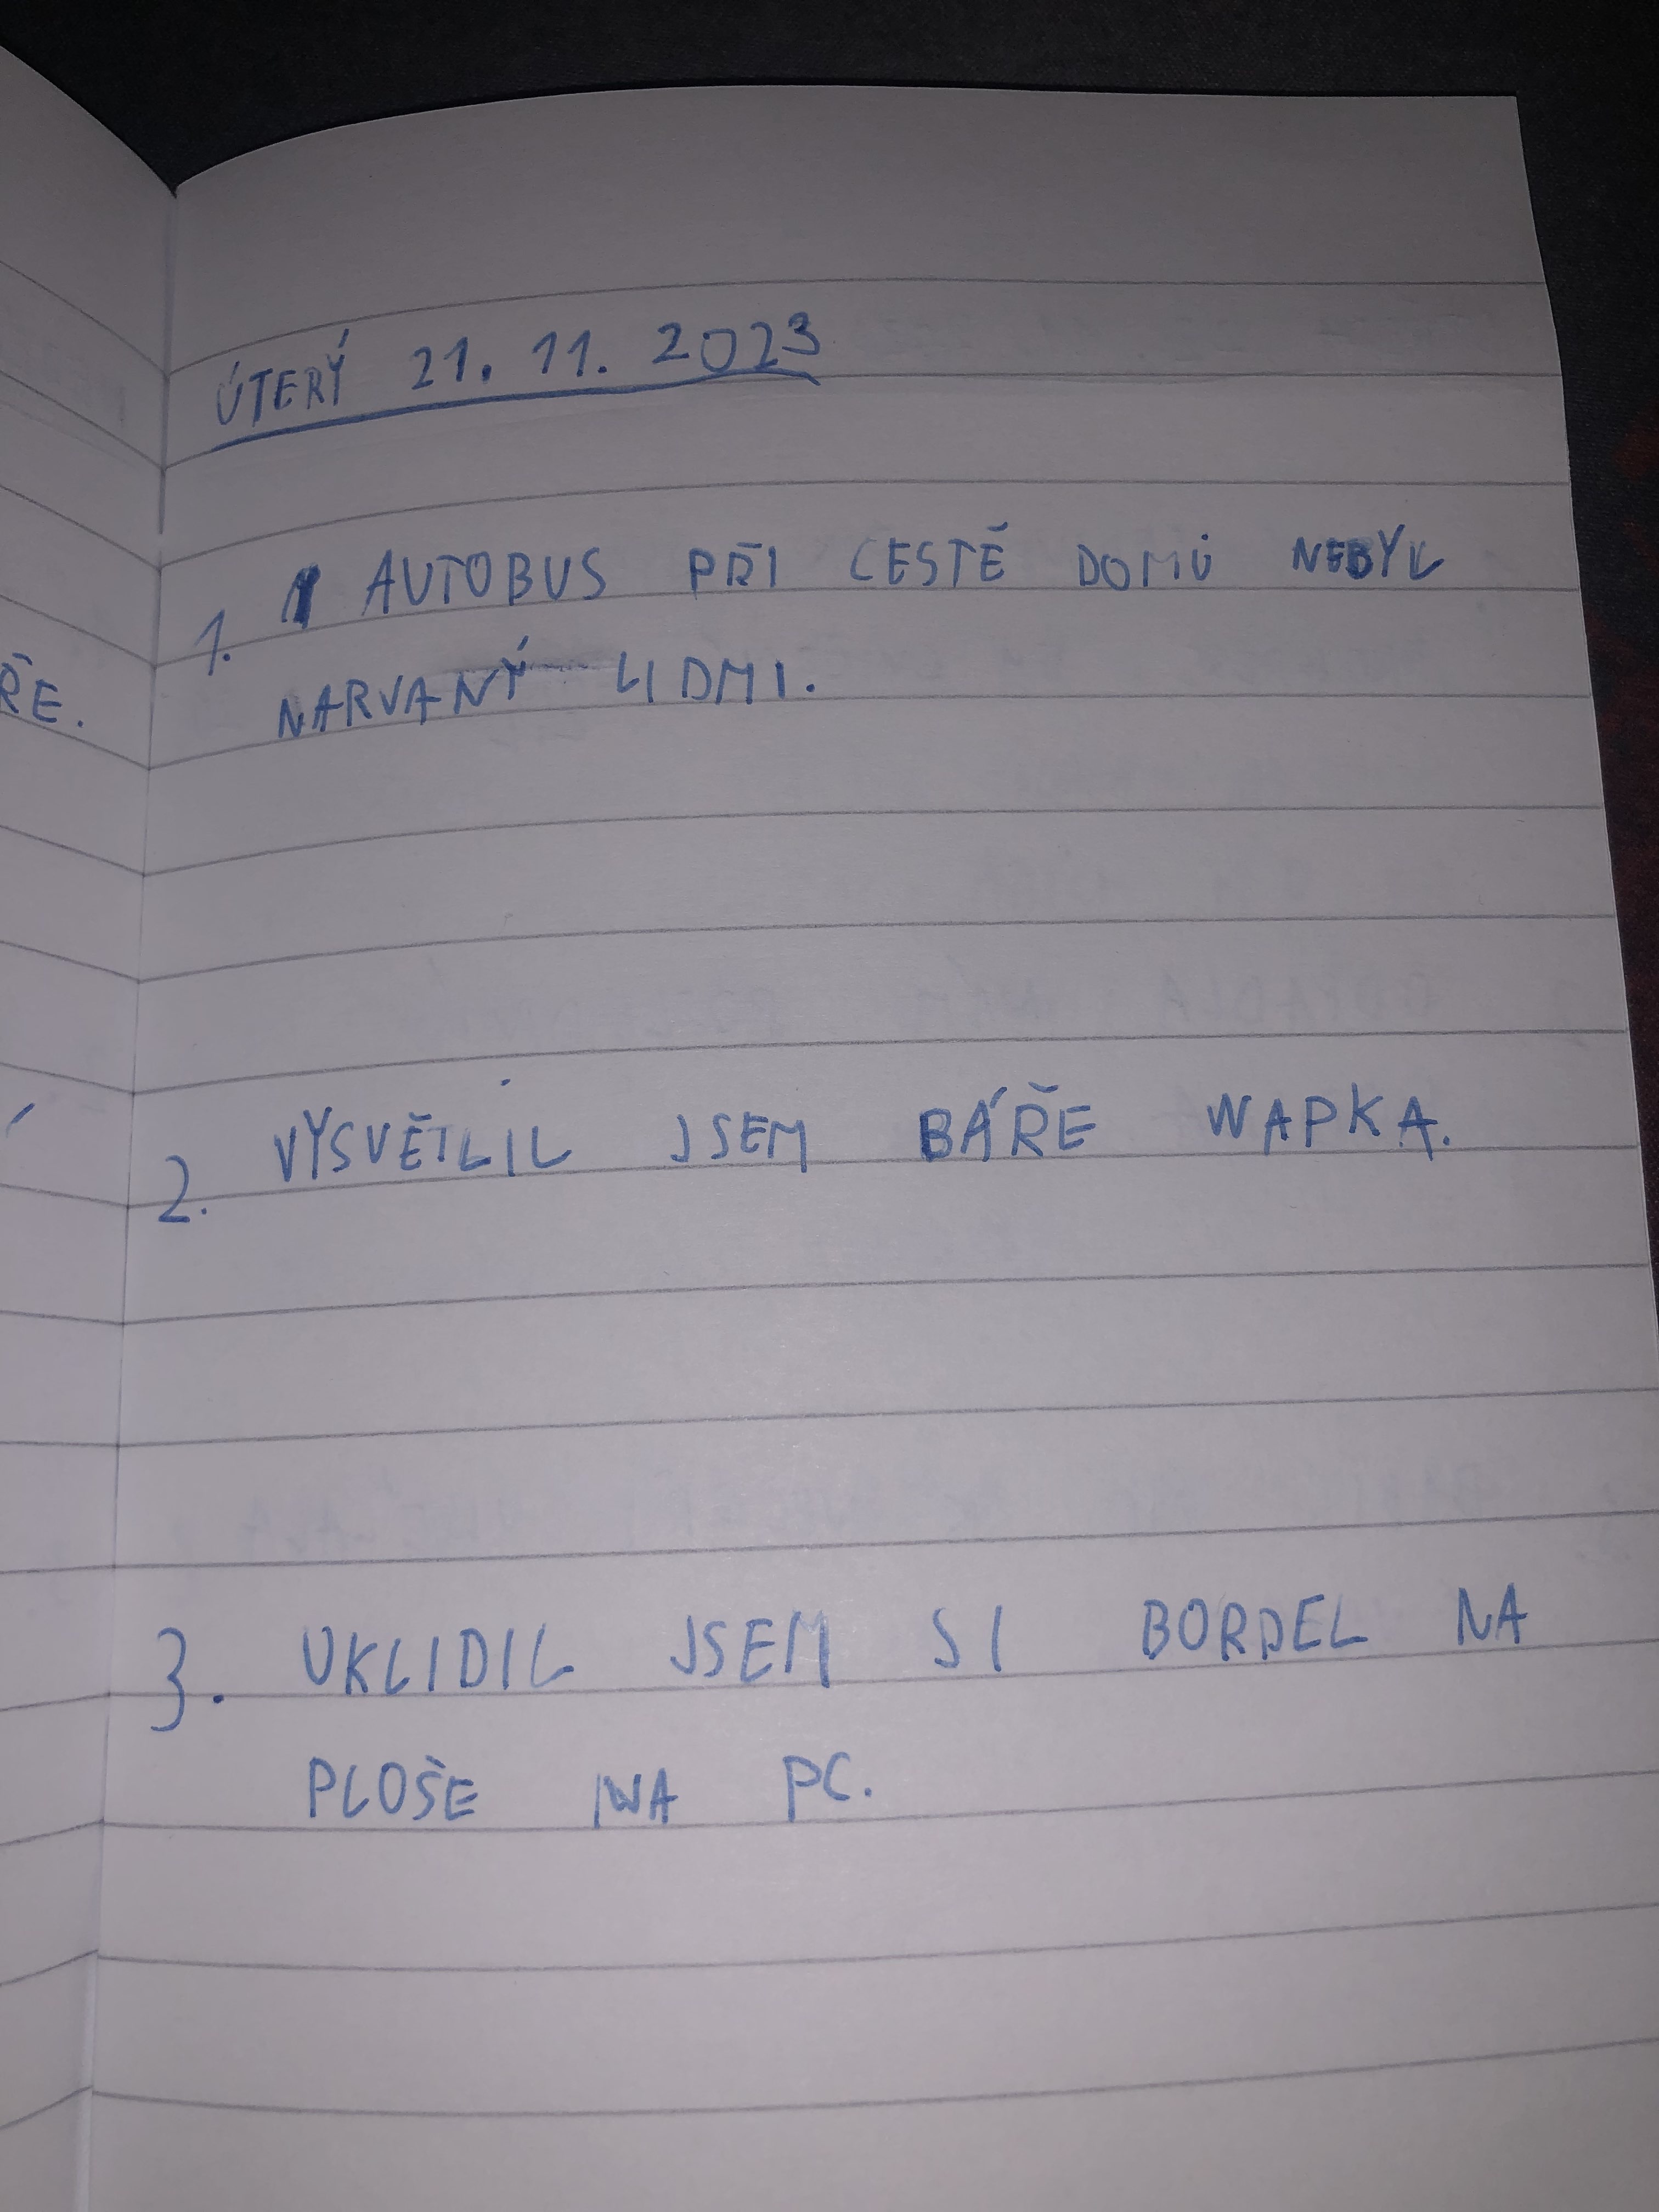 ÚTERÝ 21. 11. 2023
1. AUTOBUS PŘI CESTĚ DOMŮ NEBYL
NARVANÝ LIDMI.
ŘE.
2. VYSVĚTLIL JSEM BÁŘE WAPKA.
3. UKLIDIL JSEM SI BORDEL NA
PLOŠE NA PC.